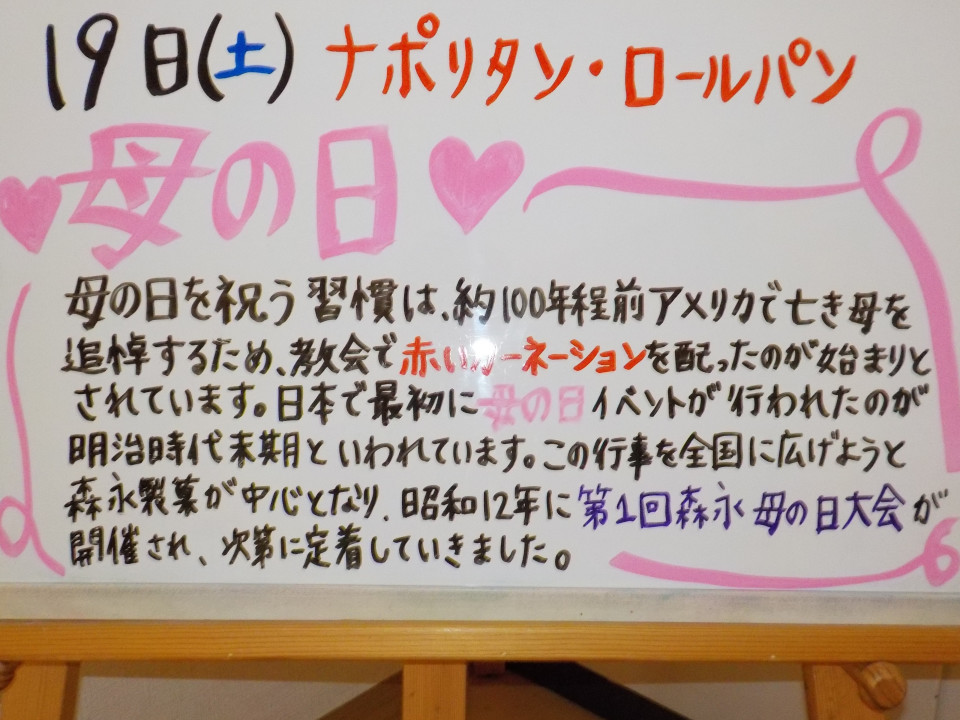 19日(土) ナポリタン・ロールパン
母の日
母の日を祝う習慣は、約100年程前アメリカで亡き母を
追悼するため、教会で赤いカーネーションを配ったのが始まりと
されています。日本で最初に母の日イベントが行われたのが
明治時代末期といわれています。この行事を全国に広げようと
森永製菓が中心となり、昭和12年に第1回森永母の日大会が
開催され、次第に定着していきました。